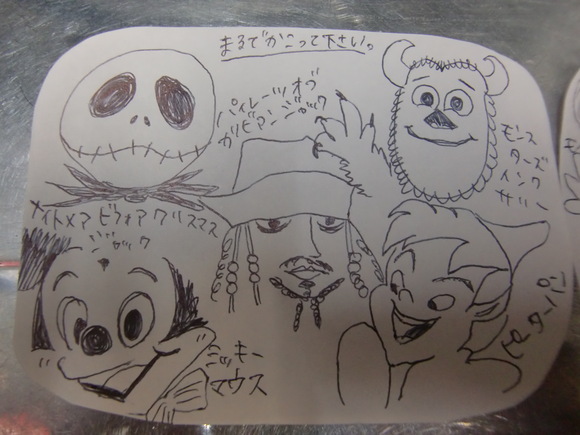 まるでかこって下さい。
パイレーツオブ
カリビアンジャック
モンス
ターズ
インク
サリー
ナイトメアビフォアクリスマス
ジャック
ミッキー
マウス
ピーターパン